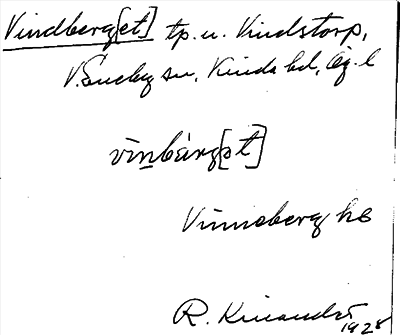 Vindberg[et] tp. u. Vindstorp,
V. Eneby sn, Kinda hd, Ög. l
vinbärg[ət]
Vinneberg hs
R. Kinander 1928